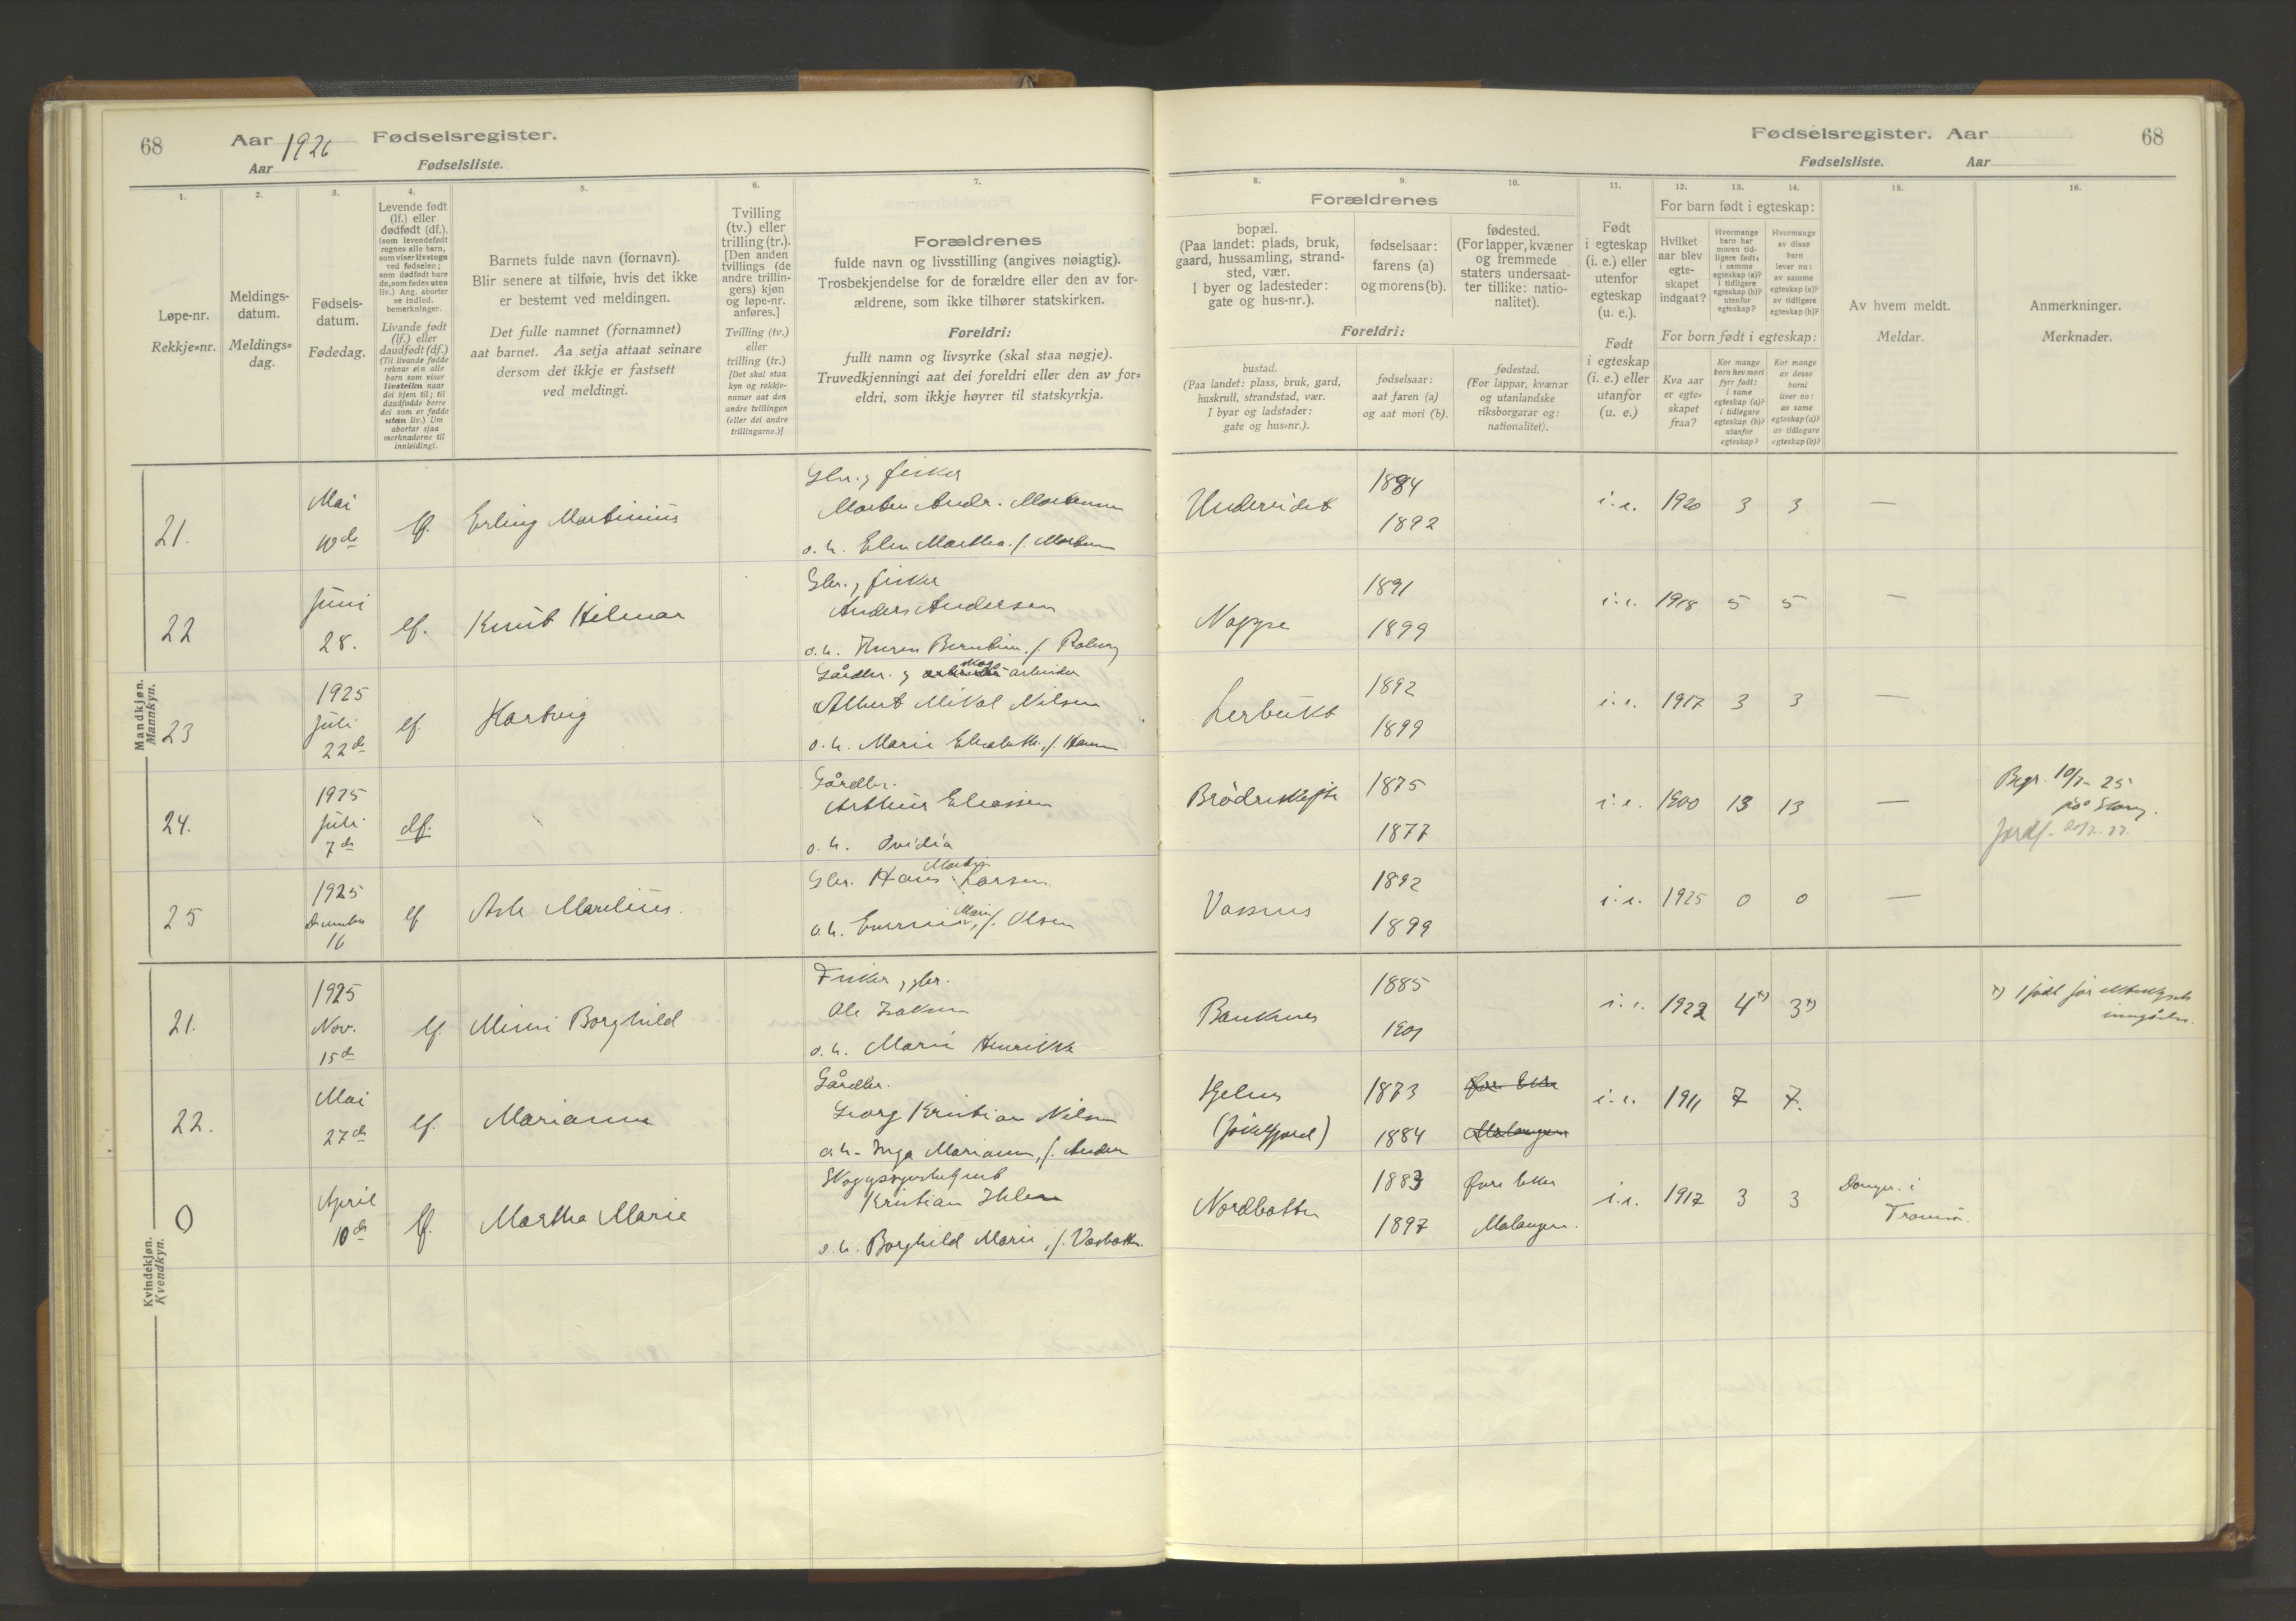 68
Aar 1926
Fødselsregister.
Aar
Fødselsliste.
1.
2.
3.
4.
5.
6.
7.
Løpe-nr.
Rekkje=nr.
Meldings-
datum.
Meldings=
dag.
Fødsels-
datum.
Fødedag.
Levende født
(lf.) eller
dødfødt (df.).
(som levendefødt
regnes alle barn,
som viser livstegn
ved fødselen;
som dødfødt bare
de, som fødes uten
liv.) Ang. aborter
se indled.
bemerkninger.
Livande født
(lf.) eller
daudfødt (df.)
(Til livande fødde
reknar ein alle
barn som viser
livsteikn naar
dei kjem til; til
daudfødde berre
dei som er fødde
utan liv.) Um
abortar sjaa
merknaderne til
innleidingi.
Barnets fulde navn (fornavn).
Blir senere at tilføie, hvis det ikke
er bestemt ved meldingen.
Det fulle namnet (fornamnet)
aat barnet. Aa setja attaat seinare
dersom det ikkje er fastsett
ved meldingi.
Tvilling
(tv.) eller
trilling (tr.).
[Den anden
tvillings (de
andre trillin-
gers) kjøn
og løpe-nr.
anføres.]
Tvilling (tv.)
eller
trilling (tr.)
[Det skal staa
kyn og rekkje-
numer aat den
andre tvillingen
(eller dei andre
trillingarne.)]
Forældrenes
fulde navn og livsstilling (angives nøiagtig).
Trosbekjendelse for de forældre eller den av for-
ældrene, som ikke tilhører statskirken.
Foreldri:
fullt namn og livsyrke (skal staa nøgje).
Truvedkjenningi aat dei foreldri eller den av for=
eldri, som ikkje høyrer til statskyrkja.
Mandkjøn.
Mannkyn.
21.
Mai
10de
lf.
Erling Martinius
Gbr., fisker
Morten Andr. Mortensen
o. h. Elen Marthea. f. Mortensen
22
Juni
28.
lf.
Knut Hilmar
Gbr., fisker
Anders Andersen
o. h. Berntine. f.
23
1925
Juli
22de
lf.
Hartvig
Gårdbr. arbeider
Albert Mikal Nilsen
o. h. Marie Elisabeth, f. Hansen
24.
1925
Juli
7de
df.
Gårdbr.
Arthur Eliassen
o. h. Ovidia
25
1925
December
16
lf
Asle Marelius.
Gbr. Hans Martin Larsen
o. h. Marie, f. Olsen
Kvindekjøn.
Kvendkyn.
21.
1925
Nov.
15de
lf.
Minni Borghild
Fisker, gbr.
Ole Isaksen
o. h. Marie Henrikke
22.
Mai
27de
lf.
Marianne
Gårdbr.
Georg Kristian Nilsen
o. h. Inga Marianne, f.
0
April
10de
lf.
Martha Marie
Kristian Ihlen
o. h. Borghild Marie, f. Vasbotten.
Fødselsregister. Aar
68
Fødselsliste.
Aar
8.
9.
10.
11.
12.
13.
14.
15.
16.
Forældrenes
bopæl.
(Paa landet: plads, bruk,
gaard, hussamling, strand-
sted, vær.
I byer og ladesteder:
gate og hus-nr.).
fødselsaar:
farens (a)
og morens (b).
fødested.
(For lapper, kvæner
og fremmede
staters undersaat-
ter tillike: natio-
nalitet).
Foreldri:
bustad.
(Paa landet: plass, bruk, gard,
huskrull, strandstad, vær.
I byar og ladstader:
gate og hus=nr.).
fødselsaar:
aat faren (a)
og aat mori (b).
fødestad.
(For lappar, kvænar
og utanlandske
riksborgarar og:
nationalitet).
Født
i egteskap
(i. e.) eller
utenfor
egteskap
(u. e.).
Født
i egteskap
(i. e.) eller
utanfor
(u. e.)
For barn født i egteskap:
Hvilket
aar blev
egte-
skapet
indgaat?
Hvormange
barn har
moren tid-
ligere født:
i samme
egteskap (a)?
i tidligere
egteskap (b)?
utenfor
egteskap?
Hvormange
av disse
barn
lever nu:
av samme
egteskap (a)?
av tidligere
egteskap (b)?
For born født i egteskap:
Kva aar
er egte=
skapet
fraa?
Kor mange
born hev mori
fyrr født:
i same
egteskap (a)?
i tidlegare
egteskap (b)?
utanfor
egteskap?
Kor mange
av desse
borni
liver no:
av same
egteskap (a)?
av tidlegare
egteskap (b)?
Av hvem meldt.
Meldar.
Anmerkninger.
Merknader.
Undereidet
1884
1892
i. e.
1920
3
3
—
1891
1899
i. e.
1918
5
5
—
Lerbukt
1892
1899
i. e.
1917
3
3
—
1875
1877
i. e.
1900
13
13
—
Begr. 10/7-25
Vassnes
1892
1899
i. e.
1925
0
0
—
1885
1901
i. e.
1922
4 x)
3 x)
x) 1 født før
Hjelnes
(Jøkelfjord)
1873
1884
Øvre Eiker
Malangen
i. e.
1911
7
7.
Nordbotten
1883
1897
Øvre Eiker
Malangen.
i. e.
1917
3
3
i
Tromsø.